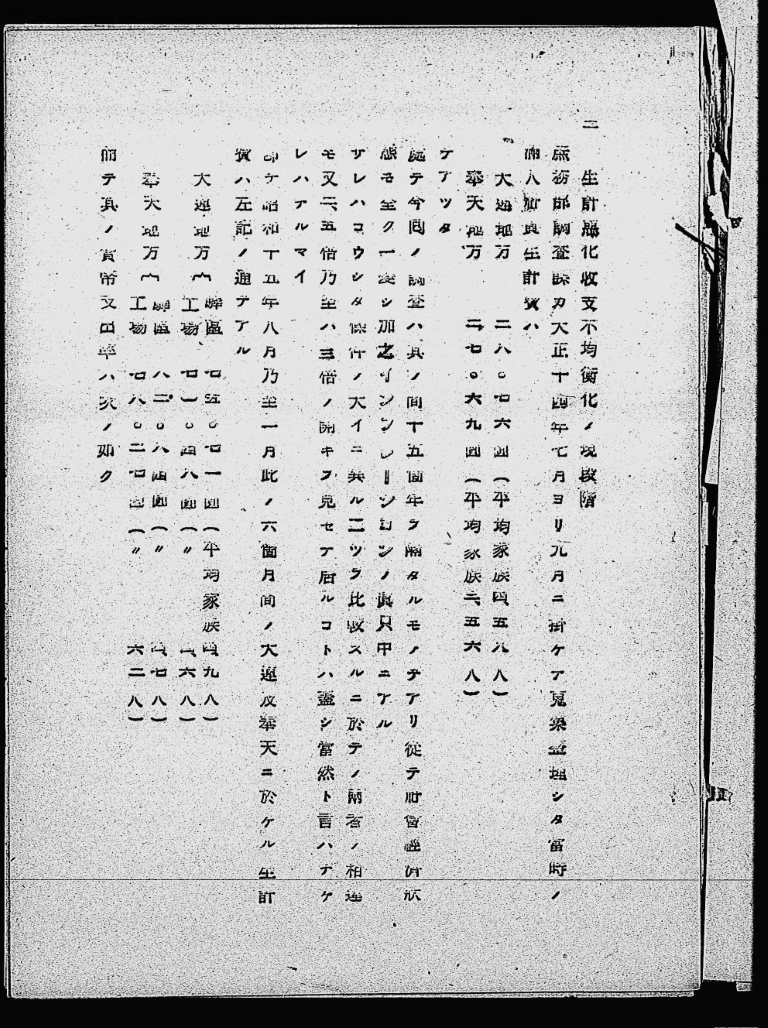 二
生計惡化收支不均衡化ノ現段階
庶務部調査課カ大正十四年七月ヨリ九月ニ掛ケテ蒐集整理シタ當時ノ
滿人傭員生計費ハ
大連地方 二八。七六圓(平均家族四五八人)
奉天地方 二七。六九圓(平均家族三五六人)
テアツタ
處テ今囘ノ調査ハ其ノ間十五箇年ヲ隔タルモノテアリ從テ社會經濟狀
態モ全ク一變シ加之インフレーシヨンノ眞只中ニアル
サレハコウシタ條件ノ大イニ異ル二ツヲ比較スルニ於テノ兩者ノ相違
モ又二、五倍乃至ハ三倍ノ開キヲ見セテ居ルコトハ蓋シ當然ト言ハナケ
レハナルマイ
即ケ昭和十五年八月乃至一月此ノ六箇月間ノ大連及奉天ニ於ケル生計
費ハ左記ノ通テアル
大連地方 埠區 七五。七一圓(平均家族四九人)
工場 七一。四八圓(〃 六人)
奉天地方 埠區 八二。八四圓(〃 四七人)
工場 七八。二七圓(〃 六二人)
而テ其ノ貨幣支出率ハ次ノ如ク